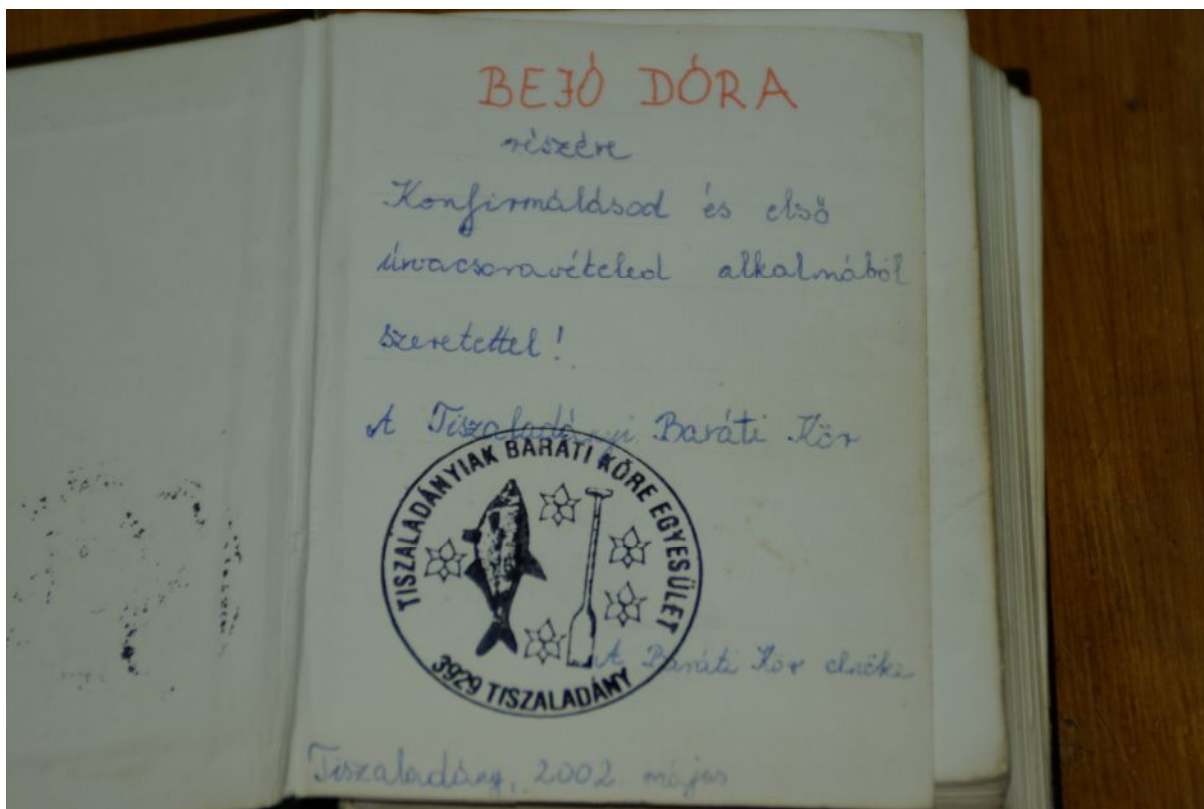 BEJÓ DÓRA
részére
Konfirmálásod és első
úrvacsoravételed alkalmából
szeretettel!
A Tiszaladányi Baráti Kör
TISZALADÁNYIAK BARÁTI KÖRE EGYESÜLET
3929 TISZALADÁNY
A Baráti Kör elnöke
Tiszaladány, 2002. május